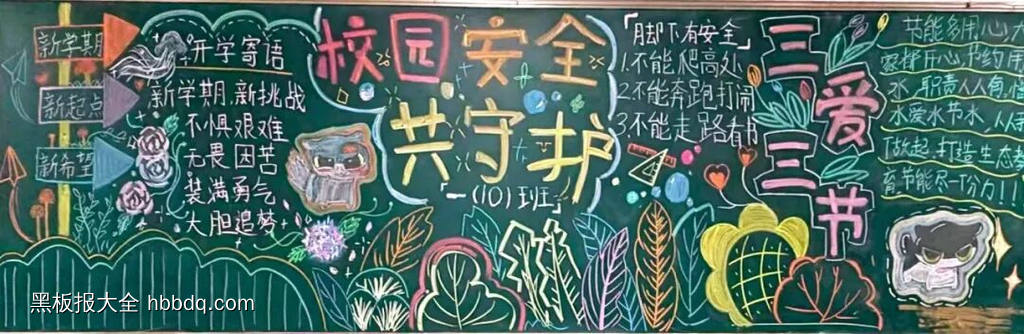 新学期
新起点
新希望
开学寄语
新学期,新挑战
不惧艰难
无畏困苦
装满勇气
大胆追梦
校园安全
共守护
「一(10)班」
「脚下有安全」
1.不能爬高处
2.不能奔跑打闹
3.不能走路看
三爱
三节
节能多用心,
家择用心,节约用
水,职责人人有,
水爱水节水,人人
做起,打造生态
育节能尽一份力!!
黑板报大全 hbbdq.com